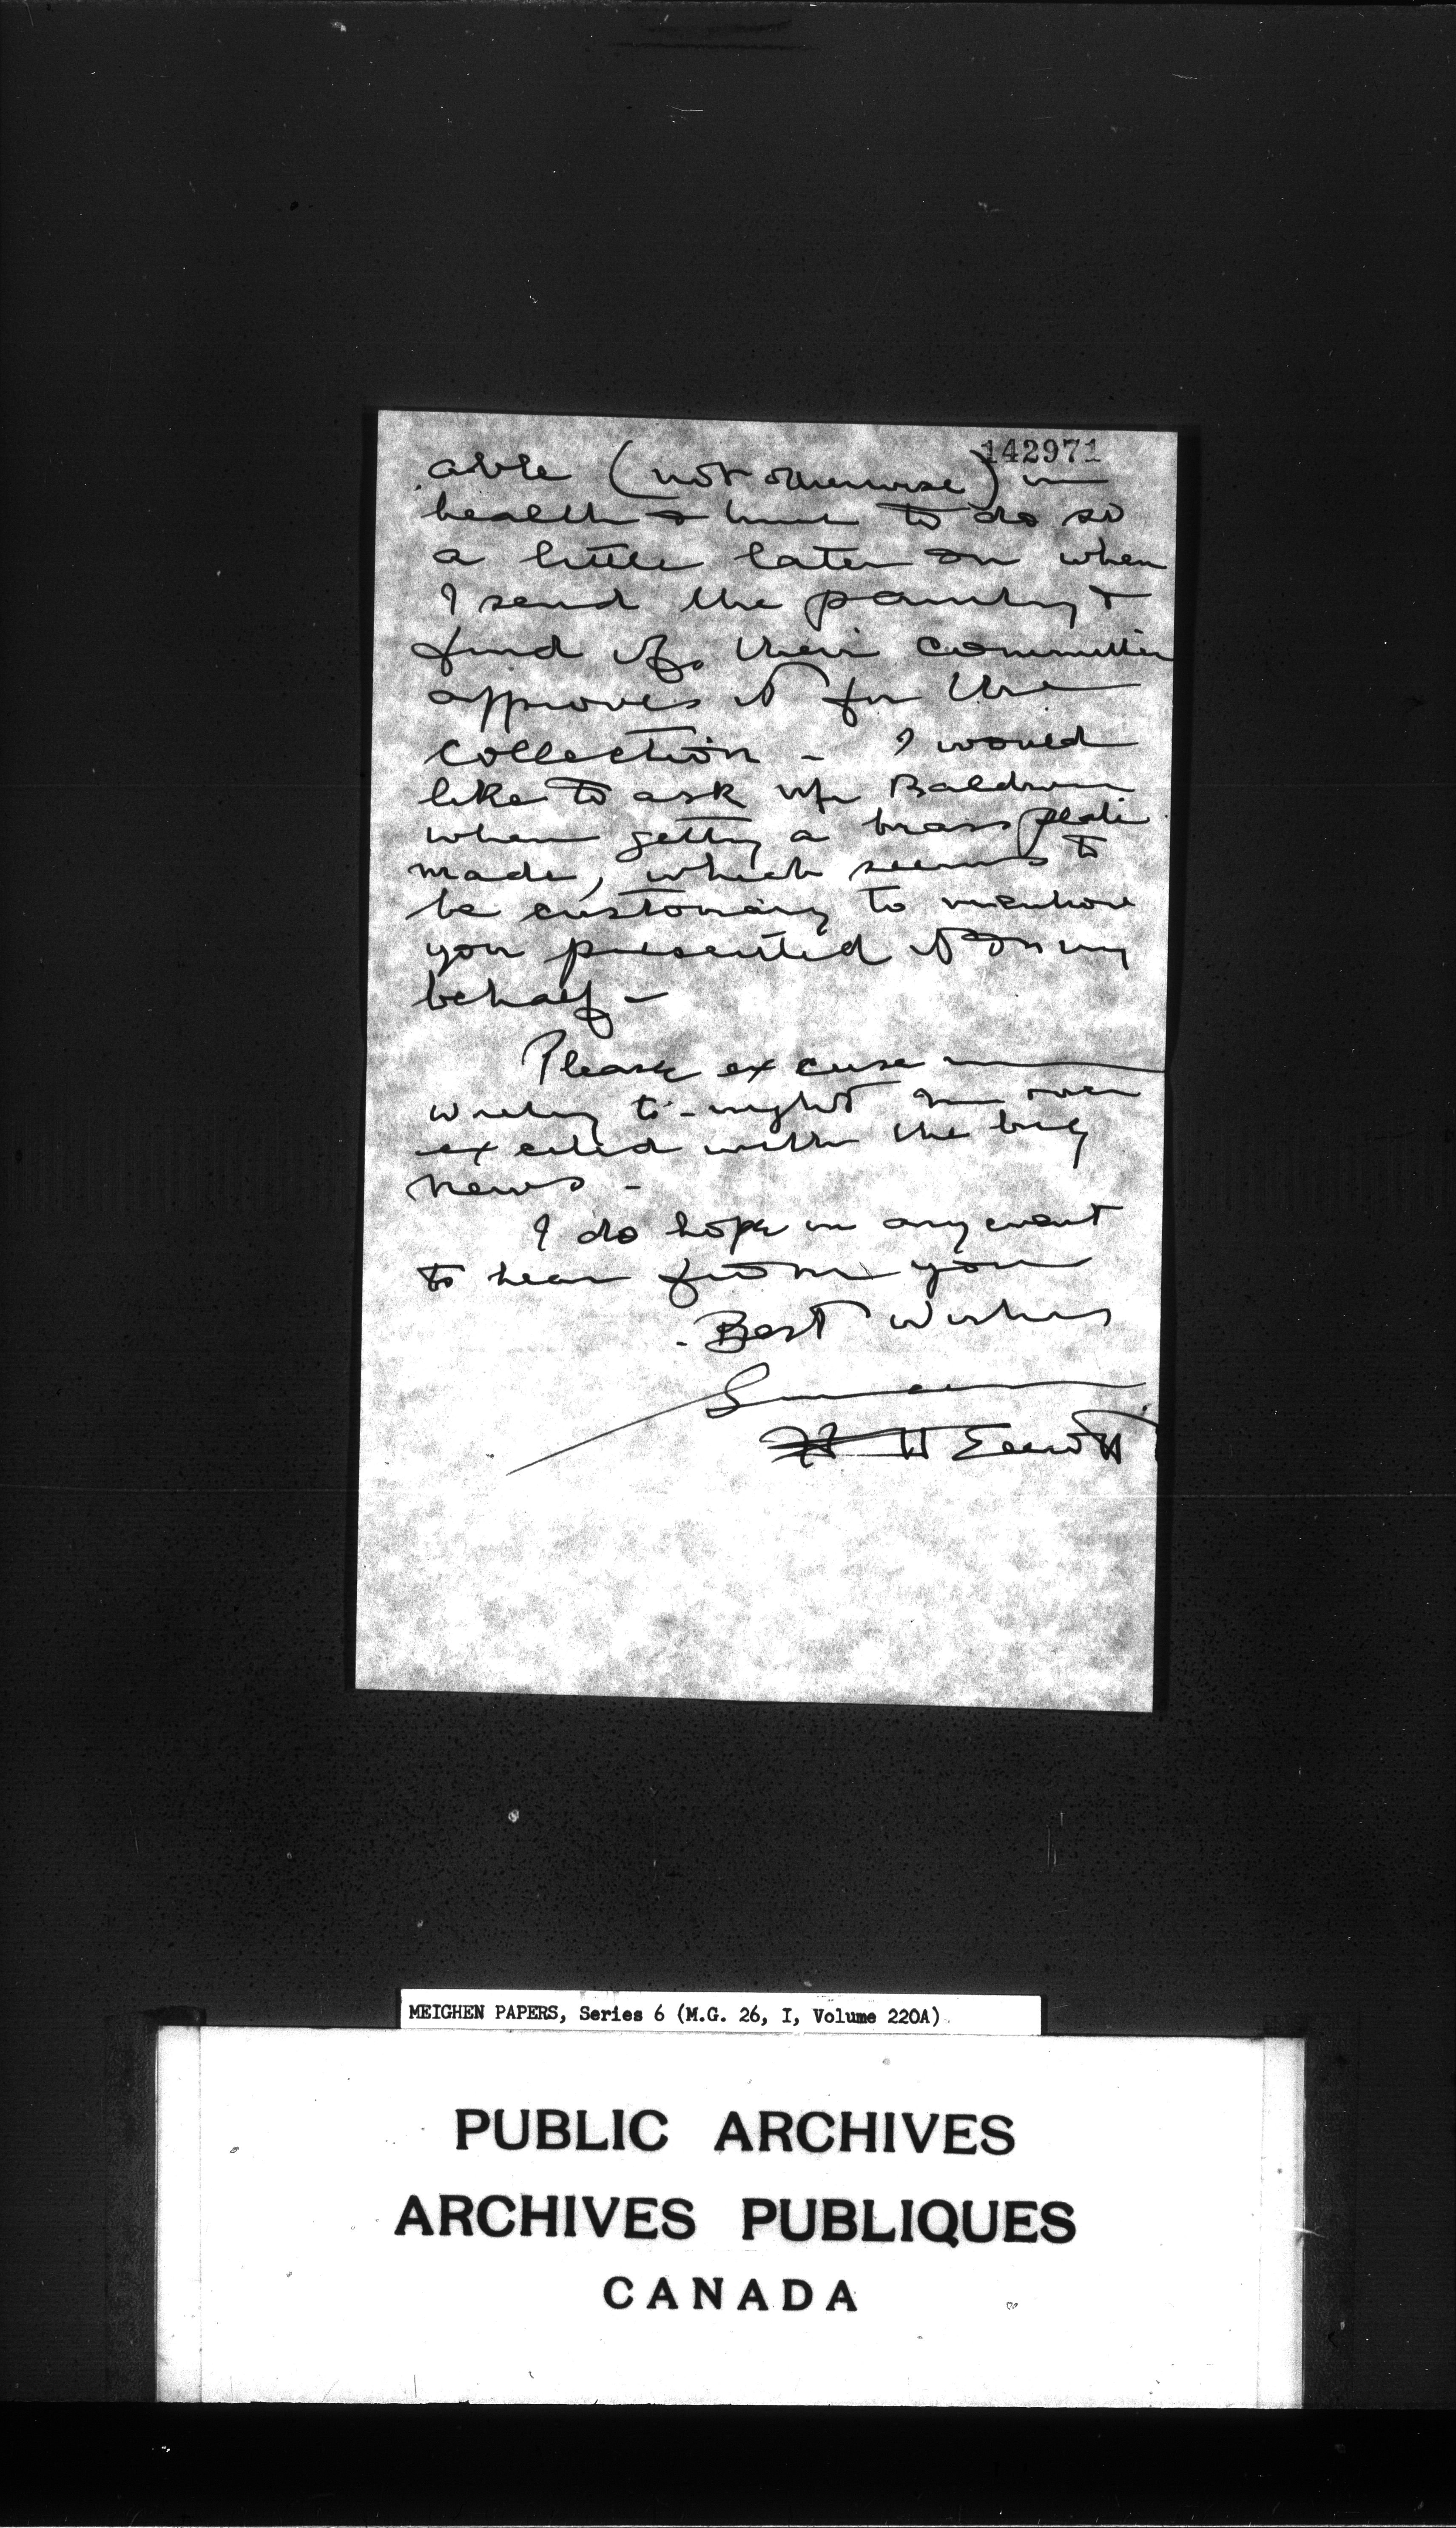 142971
able (not otherwise) in
health & time to do so
a little later on when
I send the painting &
find if their committee
approves it for the
collection - I would
like to ask Mr Baldwin
when getting a brass plate
made, which seems to
be customary to mention
you presented it on my
behalf -
Please excuse
writing to-night am over
excited with the big
news -
I do hope in any event
to hear from you
Best Wishes
MEIGHEN PAPERS, Series 6 (M.G. 26, I, Volume 220A)
PUBLIC ARCHIVES
ARCHIVES PUBLIQUES
CANADA